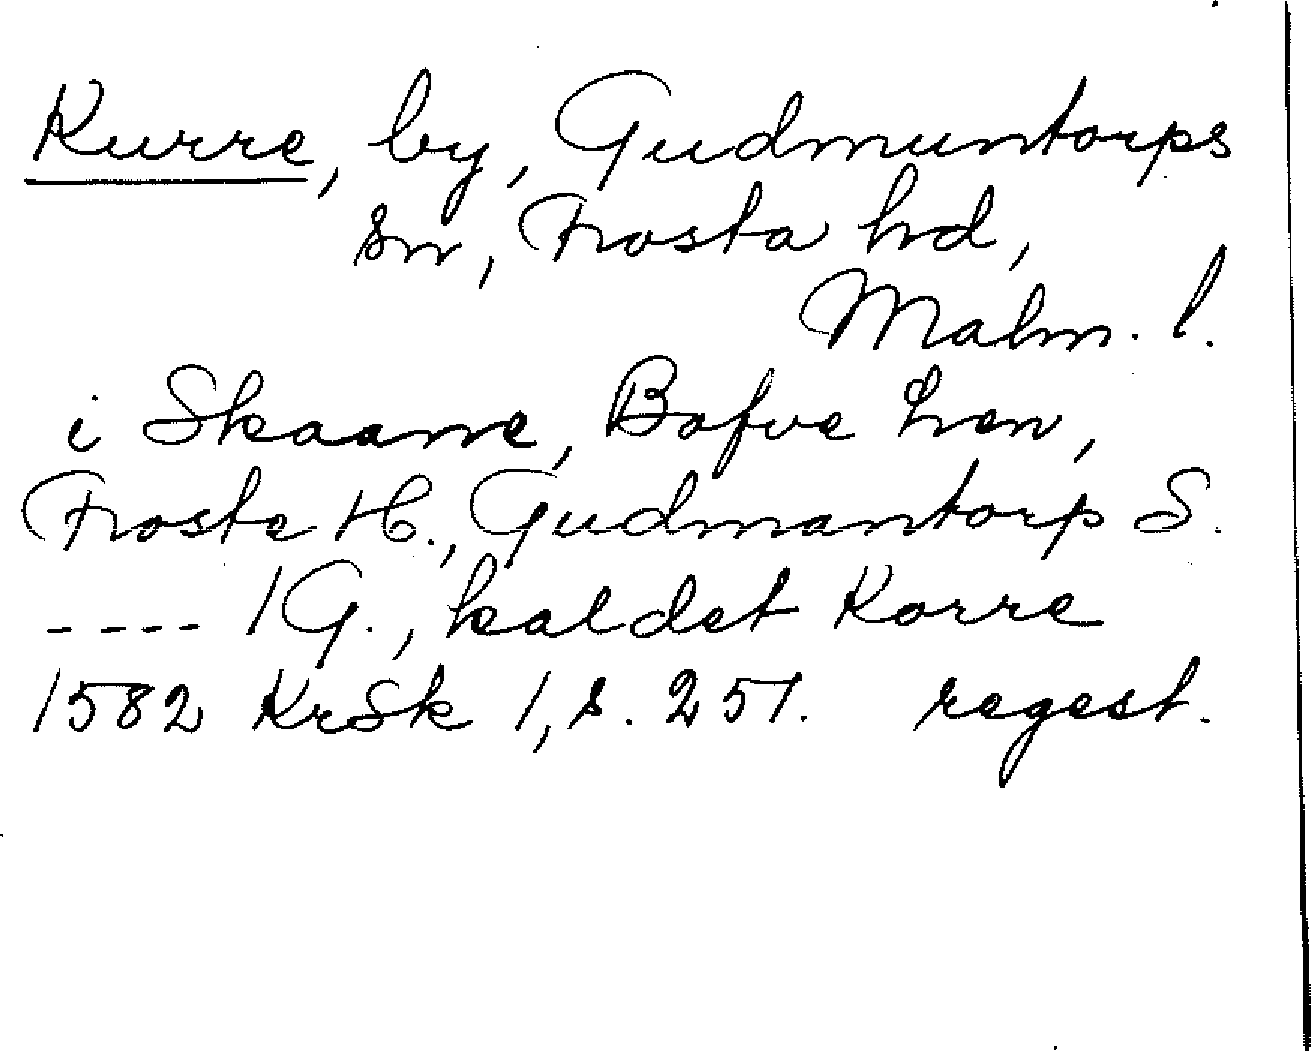 Kurre, by, Gudmuntorps
sn, Frosta hd,
Malm. l.
i Skaane, Bofve Len,
Froste H., Gudmantorp S.
---- 1 G., kaldet Korre
1582 KrSk 1, s. 251. regest.